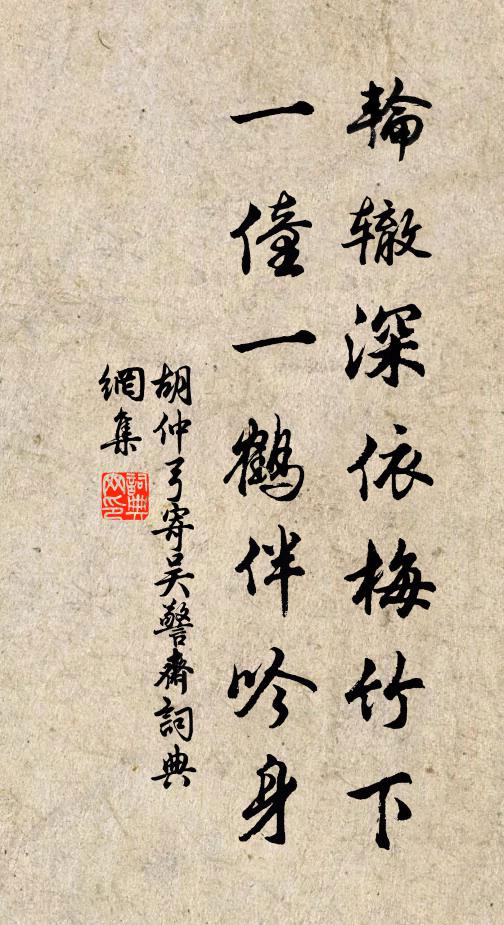 輪辙深依梅竹下
一僮一鶴伴吟身
胡仲弓寄吴警齋詞典
網集
詞典
网印